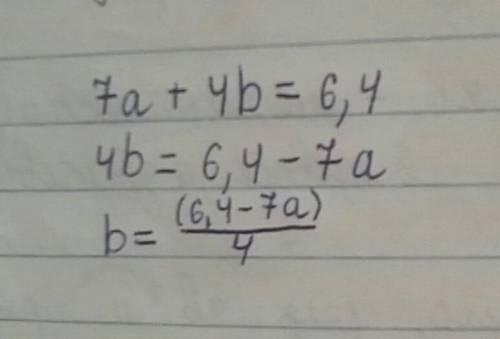 7a + 4b = 6,4
4b = 6,4 - 7a
b = (6,4-7a)/4